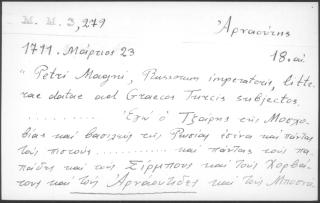 M. M. 3, 279
Ἀρναούτης
1711. Μάρτιος 23
18. αἰ.
"Petri Magni, Russorum imperatoris, litte-
rae datae ad Graecos Turcis subjectos.
.......... Ἐγὼ ὁ Τζάρης τῆς Μοσχο-
βίας καὶ βασιλεὺς τῆς Ρωσίας εἰς ἕνα καὶ πάντας
τοὺς πιστοὺς ......... καὶ πάντας τοὺς πα-
πάδες καὶ τοὺς Σέρμπους καὶ τοὺς Χορβά-
τους καὶ τοὺς Ἀρναούτηδες καὶ τοὺς Μποσνα-